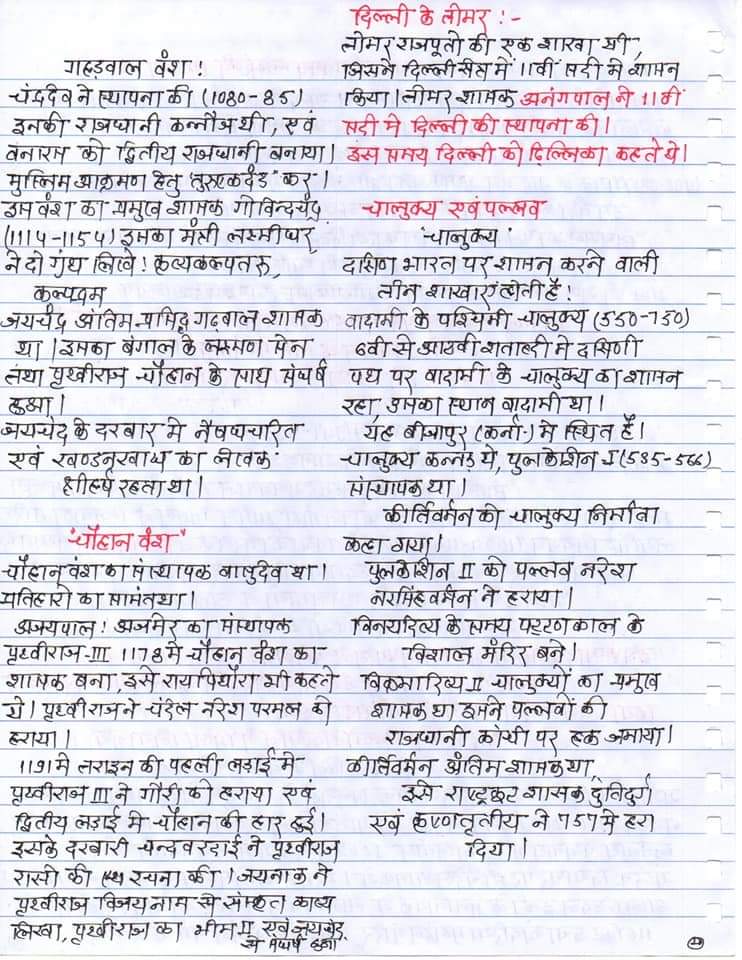 गहड़वाल वंश!
चंद्रदेव ने स्थापना की (1080-85)
इनकी राजधानी कन्नौज थी, एवं
बनारस को द्वितीय राजधानी बनाया।
मुस्लिम आक्रमण हेतु 'तुरुष्कदंड' कर।
इस वंश का प्रमुख शासक गोविन्दचंद्र
(1114-1154) इसका मंत्री लक्ष्मीधर,
ने दो ग्रंथ लिखे! कृत्यकल्पतरु,
कल्पद्रुम
जयचंद्र अंतिम प्रसिद्ध गढ़वाल शासक
था। इसका बंगाल के लक्ष्मण सेन
तथा पृथ्वीराज चौहान के साथ संघर्ष
हुआ।
जयचंद के दरबार में नैषधचरित
एवं खण्डनखाद्य का लेखक
श्रीहर्ष रहता था।
"चौहान वंश"
चौहान वंश का संस्थापक वासुदेव था।
प्रतिहारों का सामंत था।
अजयपाल! अजमेर का संस्थापक
पृथ्वीराज-III 1178 में चौहान वंश का
शासक बना, इसे रायपिथौरा भी कहते
थे। पृथ्वीराज ने चंदेल नरेश परमल को
हराया।
1191 में तराइन की पहली लड़ाई में
पृथ्वीराज III ने गौरी को हराया एवं
द्वितीय लड़ाई में चौहान की हार हुई।
इसके दरबारी चन्दवरदाई ने पृथ्वीराज
रासो की रचना की। जयनाक ने
पृथ्वीराज विजय नाम से संस्कृत काव्य
लिखा, पृथ्वीराज का भीम II एवं जयचंद्र
से संघर्ष हुआ
दिल्ली के तोमर :-
तोमर राजपूतों की एक शाखा थी,
जिसने दिल्ली क्षेत्र में 11वीं सदी में शासन
किया। तोमर शासक अनंगपाल ने 11वीं
सदी में दिल्ली की स्थापना की।
इस समय दिल्ली को दिल्लिका कहते थे।
चालुक्य एवं पल्लव
'चालुक्य'
दक्षिण भारत पर शासन करने वाली
तीन शाखाएं होती हैं!
वादामी के पश्चिमी चालुक्य (550-750)
6वीं से आठवीं शताब्दी में दक्षिणी
पथ पर वादामी के चालुक्य का शासन
रहा, उसका स्थान वादामी था।
यह बीजापुर (कर्ना०) में स्थित है।
चालुक्य कन्नड़ थे, पुलकेशिन I (535-566)
संस्थापक था।
कीर्तिवर्मन को चालुक्य निर्माता
कहा गया।
पुलकेशिन II को पल्लव नरेश
नरसिंहवर्मन ने हराया।
विनयादित्य के समय पट्टण काल के
विशाल मंदिर बने।
विक्रमादित्य II चालुक्यों का प्रमुख
शासक था इसने पल्लवों की
राजधानी कांची पर हक जमाया।
कीर्तिवर्मन अंतिम शासक था,
इसे राष्ट्रकूट शासक दंतिदुर्ग
एवं कृष्ण तृतीय ने 757 में हरा
दिया।